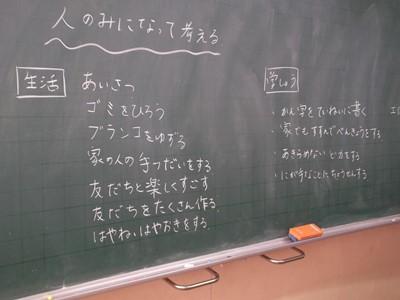 人のみになって考える
生活
あいさつ
ゴミをひろう
ブランコをゆずる
家の人の手つだいをする
友だちと楽しくすごす
友だちをたくさん作る
はやね、はやおきをする
学しゅう
・かん字をていねいに書く
・家でもすすんでべんきょうをする
・あきらめない
・にが手なことにちょうせんする